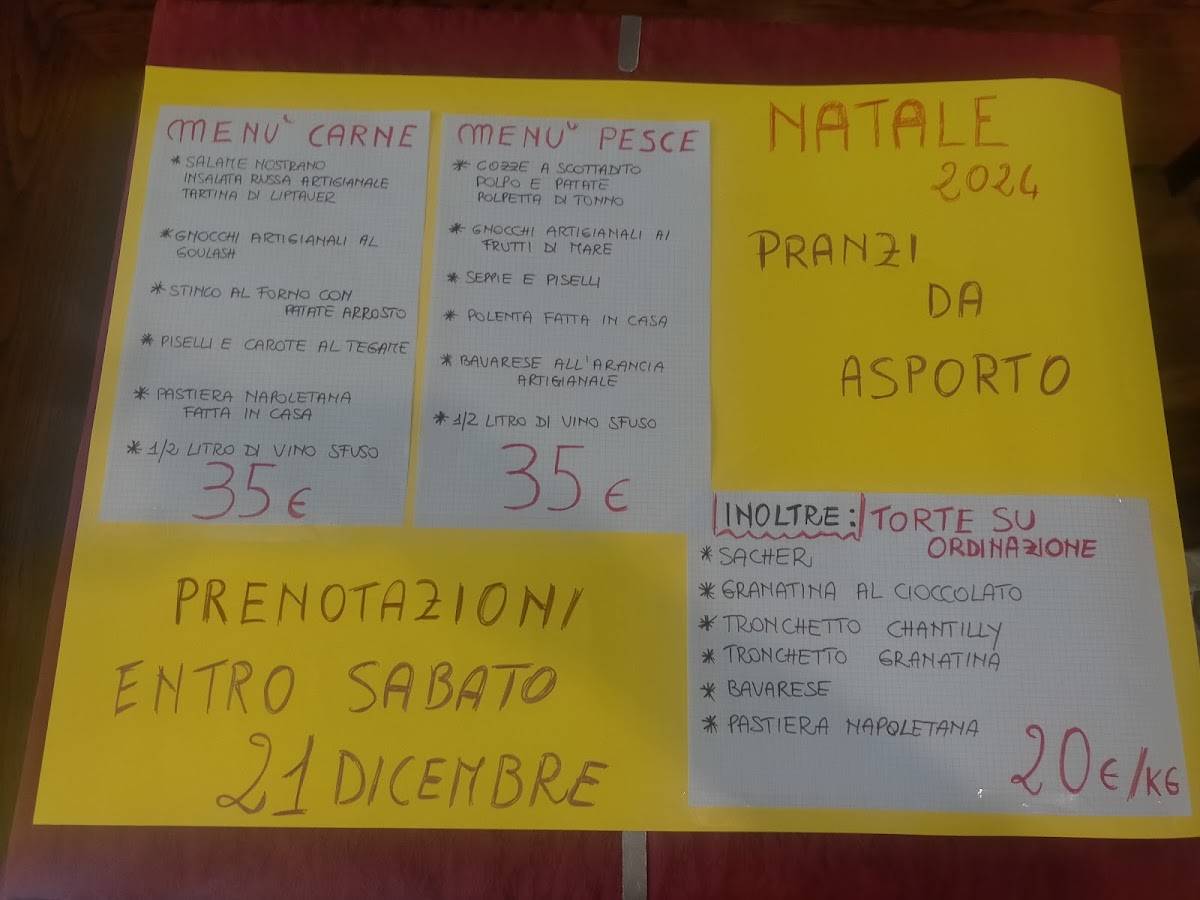 MENU' CARNE
* SALAME NOSTRANO
INSALATA RUSSA ARTIGIANALE
TARTINA DI LIPTAUER
* GNOCCHI ARTIGIANALI AL
GOULASH
* STINCO AL FORNO CON
PATATE ARROSTO
* PISELLI E CAROTE AL TEGAME
* PASTIERA NAPOLETANA
FATTA IN CASA
* 1/2 LITRO DI VINO SFUSO
35 €
MENU' PESCE
* COZZE A SCOTTADITO
POLPO E PATATE
POLPETTA DI TONNO
* GNOCCHI ARTIGIANALI AI
FRUTTI DI MARE
* SEPPIE E PISELLI
* POLENTA FATTA IN CASA
* BAVARESE ALL'ARANCIA
ARTIGIANALE
* 1/2 LITRO DI VINO SFUSO
35 €
NATALE
2024
PRANZI
DA
ASPORTO
PRENOTAZIONI
ENTRO SABATO
21 DICEMBRE
INOLTRE: TORTE SU
ORDINAZIONE
* SACHER
* GRANATINA AL CIOCCOLATO
* TRONCHETTO CHANTILLY
* TRONCHETTO GRANATINA
* BAVARESE
* PASTIERA NAPOLETANA
20 €/KG